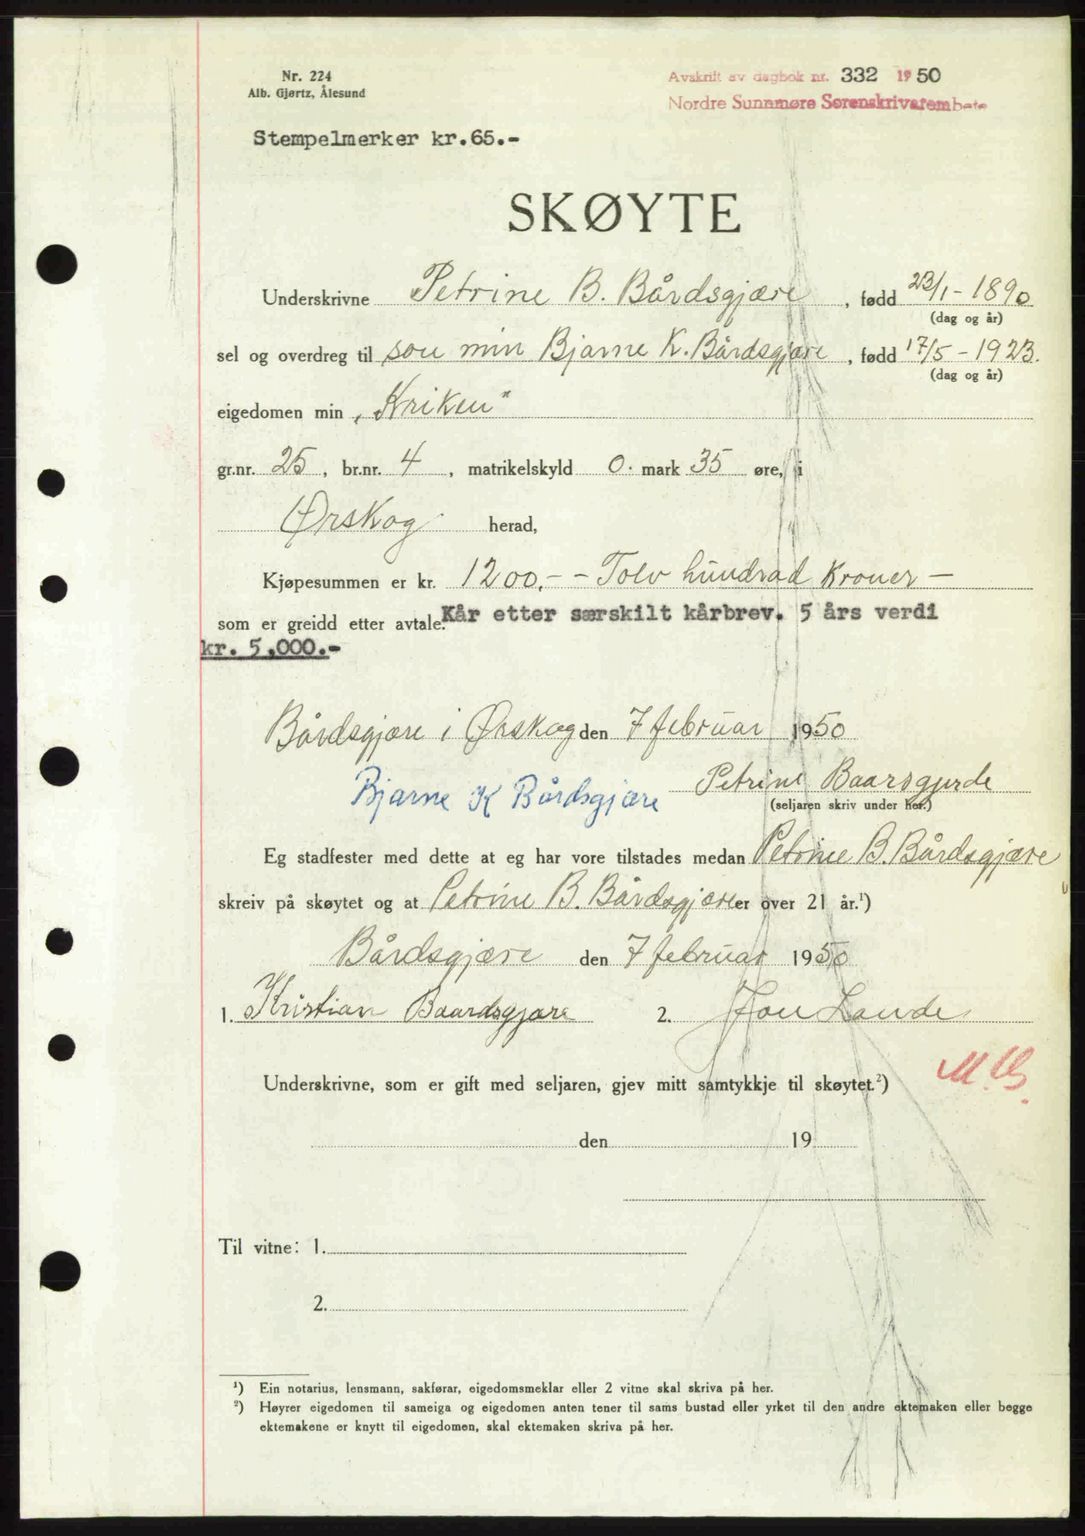 Nr. 224
Alb. Gjørtz, Ålesund
Avskrift av dagbok nr. 332 1950
Nordre Sunnmøre Sorenskrivarembete
Stempelmerker kr.65.-
SKØYTE
Underskrivne Petrine B. Bårdsgjære, fødd 23/1-1890
(dag og år)
sel og overdreg til son min Bjarne K. Bårdsgjære, fødd 17/5-1923.
(dag og år)
eigedomen min „Kriken"
gr.nr. 25, br.nr. 4, matrikelskyld 0. mark 35 øre, i
Ørskog herad,
Kjøpesummen er kr. 1200.- - Tolv hundrad kroner -
som er greidd etter avtale. Kår etter særskilt kårbrev. 5 års verdi
kr. 5,000.-
Bårdsgjære i Ørskog den 7 februar 1950
Bjarne K Bårdsgjære Petrine Baarsgjerde
(seljaren skriv under her.)
Eg stadfester med dette at eg har vore tilstades medan Petrine B. Bårdsgjære
skreiv på skøytet og at Petrine B. Bårdsgjære er over 21 år.¹)
Bårdsgjære den 7 februar 1950
1. Kristian Baardsgjære 2. Jon Lande
M.B.
Underskrivne, som er gift med seljaren, gjev mitt samtykkje til skøytet.²)
den 19
Til vitne: 1.
2.
¹) Ein notarius, lensmann, sakførar, eigedomsmeklar eller 2 vitne skal skriva på her.
²) Høyrer eigedomen til sameiga og eigedomen anten tener til sams bustad eller yrket til den andre ektemaken eller begge
ektemakene er knytt til eigedomen, skal ektemaken skriva på her.